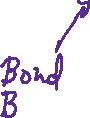 Bond
B